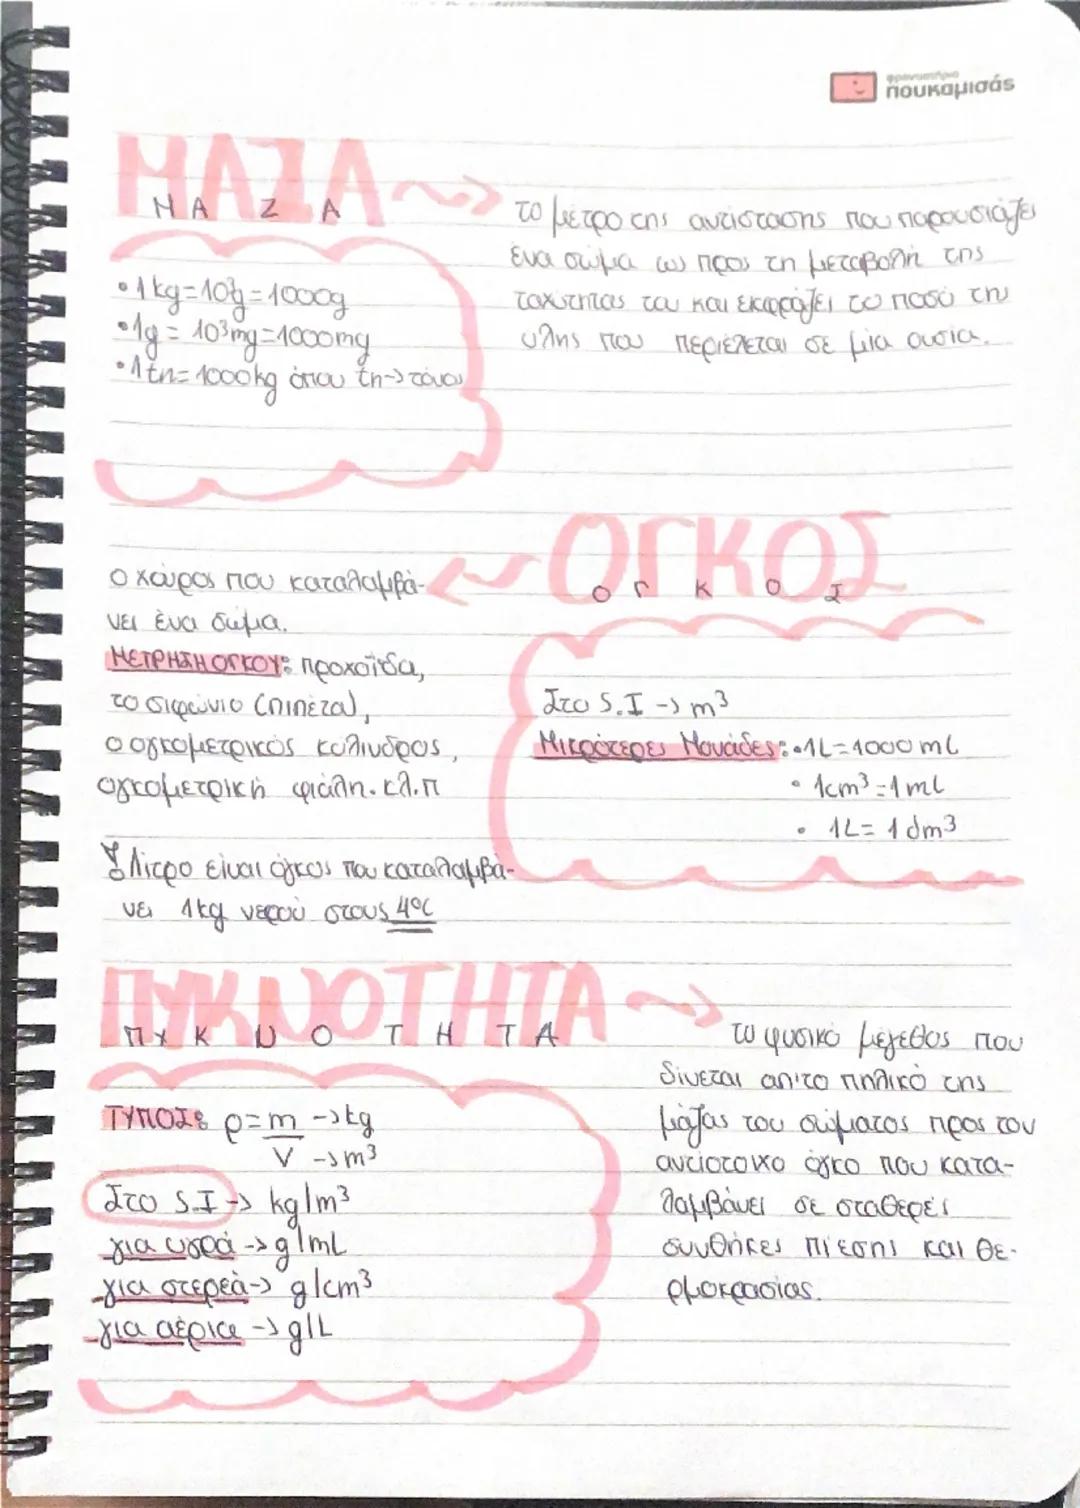 φροντιστήριο
πουκαμισάς
ΜΑΖΑ
ΜΑΖΑ
το μέτρο της αντίστασης που παρουσιάζει
ένα σώμα ως προς τη μεταβολή της
ταχύτητας του και εκφράζει το ποσό της
ύλης που περιέχεται σε μία ουσία.
•1kg=10³g=1000g
•1g=10³mg=1000mg
•1tn=1000kg όπου tn→τόνοι
ΟΓΚΟΣ
ΟΓΚΟΣ
ο χώρος που καταλαμβά-
νει ένα σώμα.
ΜΕΤΡΗΣΗ ΟΓΚΟΥ: προχοΐδα,
το σιφώνιο (πιπέτα),
ο ογκομετρικός κύλινδρος,
ογκομετρική φιάλη. κλ.π
Λίτρο είναι όγκος που καταλαμβά-
νει 1kg νερού στους 4°C
Στο S.I → m³
Μικρότερες Μονάδες: •1L=1000mL
• 1cm³=1mL
• 1L=1dm³
ΠΥΚΝΟΤΗΤΑ
ΠΥΚΝΟΤΗΤΑ
το φυσικό μέγεθος που
δίνεται απ'το πηλικό της
μάζας του σώματος προς τον
αντίστοιχο όγκο που κατα-
λαμβάνει σε σταθερές
συνθήκες πίεσης και θε-
ρμοκρασίας.
ΤΥΠΟΣ: ρ=m →kg
V →m³
Στο S.I → kg/m³
για υγρά → g/mL
για στερεά→ g/cm³
για αέρια → g/L